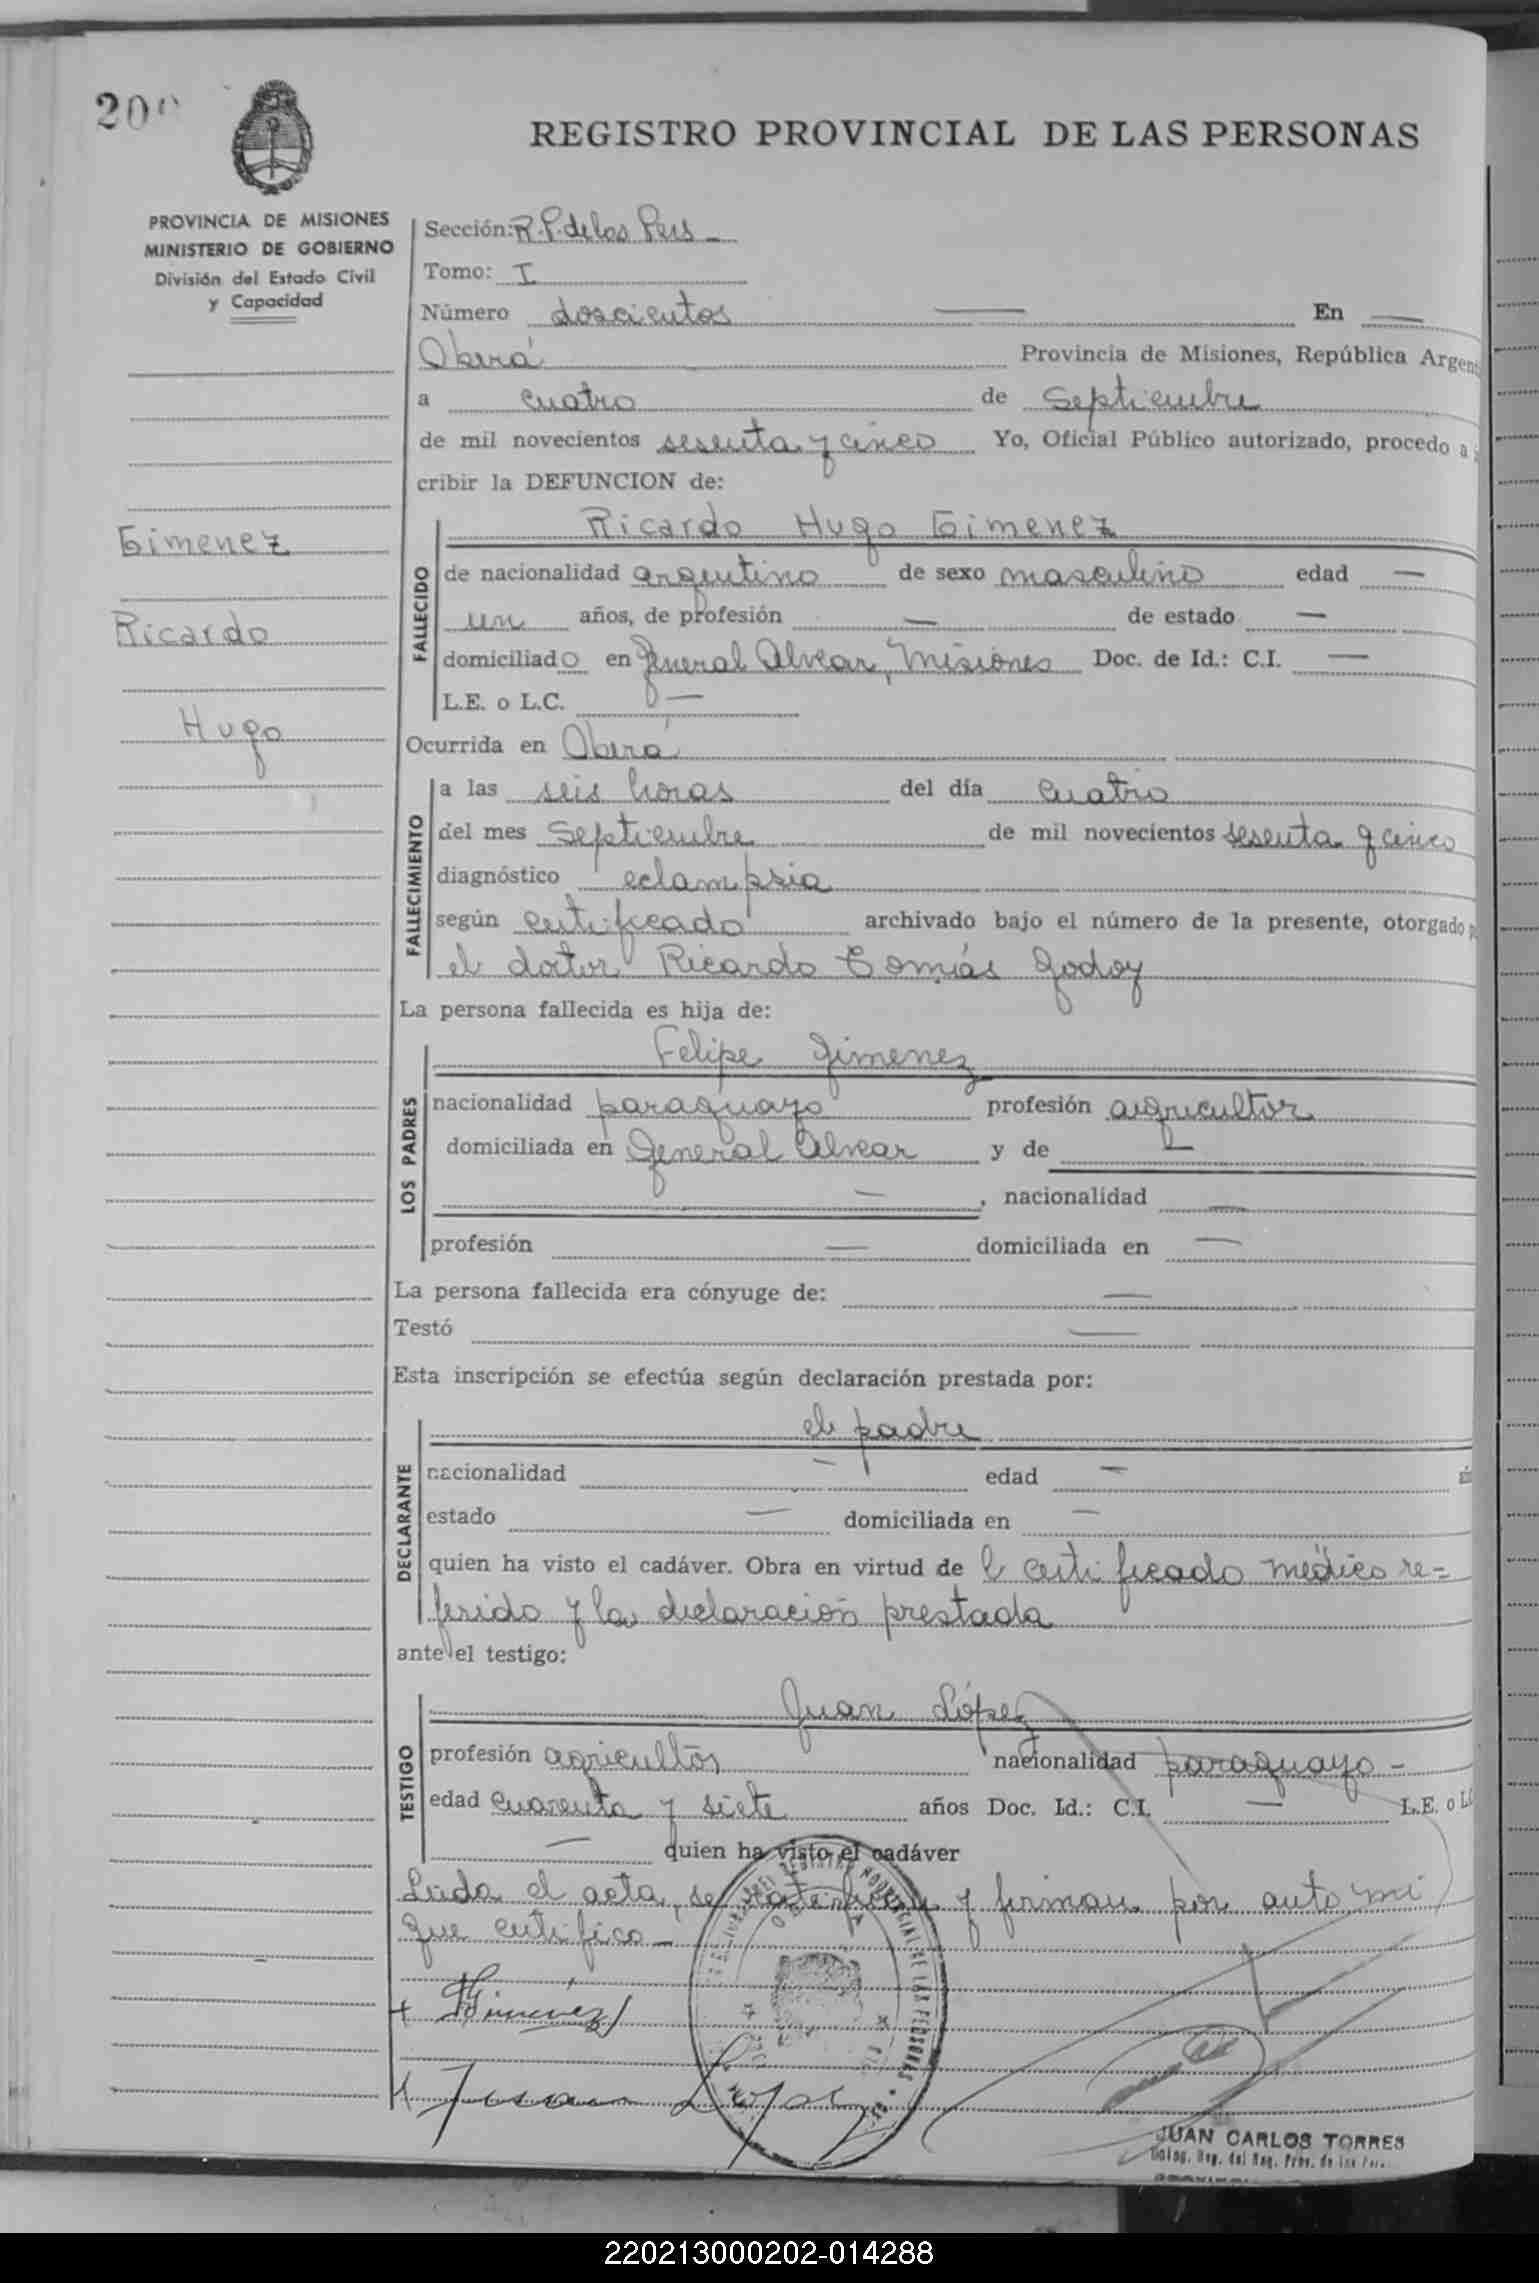 200
REGISTRO PROVINCIAL DE LAS PERSONAS
PROVINCIA DE MISIONES
MINISTERIO DE GOBIERNO
División del Estado Civil
y Capacidad
Gimenez
Ricardo
Hugo
Sección: R.P. de las Pers
Tomo: I
Número doscientos — En —
Oberá Provincia de Misiones, República Argent
a cuatro de Septiembre
de mil novecientos sesenta y cinco Yo, Oficial Público autorizado, procedo a
cribir la DEFUNCION de:
FALLECIDO
Ricardo Hugo Gimenez
de nacionalidad argentino de sexo masculino edad —
un años, de profesión — de estado —
domiciliado en General Alvear, Misiones Doc. de Id.: C.I. —
L.E. o L.C. —
Ocurrida en Oberá
FALLECIMIENTO
a las seis horas del día cuatro
del mes Septiembre de mil novecientos sesenta y cinco
diagnóstico eclampsia
según certificado archivado bajo el número de la presente, otorgado
el doctor Ricardo Tomás Godoy
La persona fallecida es hija de:
LOS PADRES
Felipe Gimenez
nacionalidad paraguayo profesión agricultor
domiciliada en General Alvear y de —
—, nacionalidad —
profesión — domiciliada en —
La persona fallecida era cónyuge de: —
Testó —
Esta inscripción se efectúa según declaración prestada por:
DECLARANTE
el padre
nacionalidad — edad —
estado — domiciliada en —
quien ha visto el cadáver. Obra en virtud de l certificado médico re=
ferido y la declaración prestada
ante el testigo:
TESTIGO
Juan López
profesión agricultor nacionalidad paraguayo -
edad cuarenta y siete años Doc. Id.: C.I. — L.E. o LC
— quien ha visto el cadáver
Leída el acta, se ratifican y firman por ante mi
que certifico —
Gimenez
Juan Lopez
JUAN CARLOS TORRES
220213000202-014288